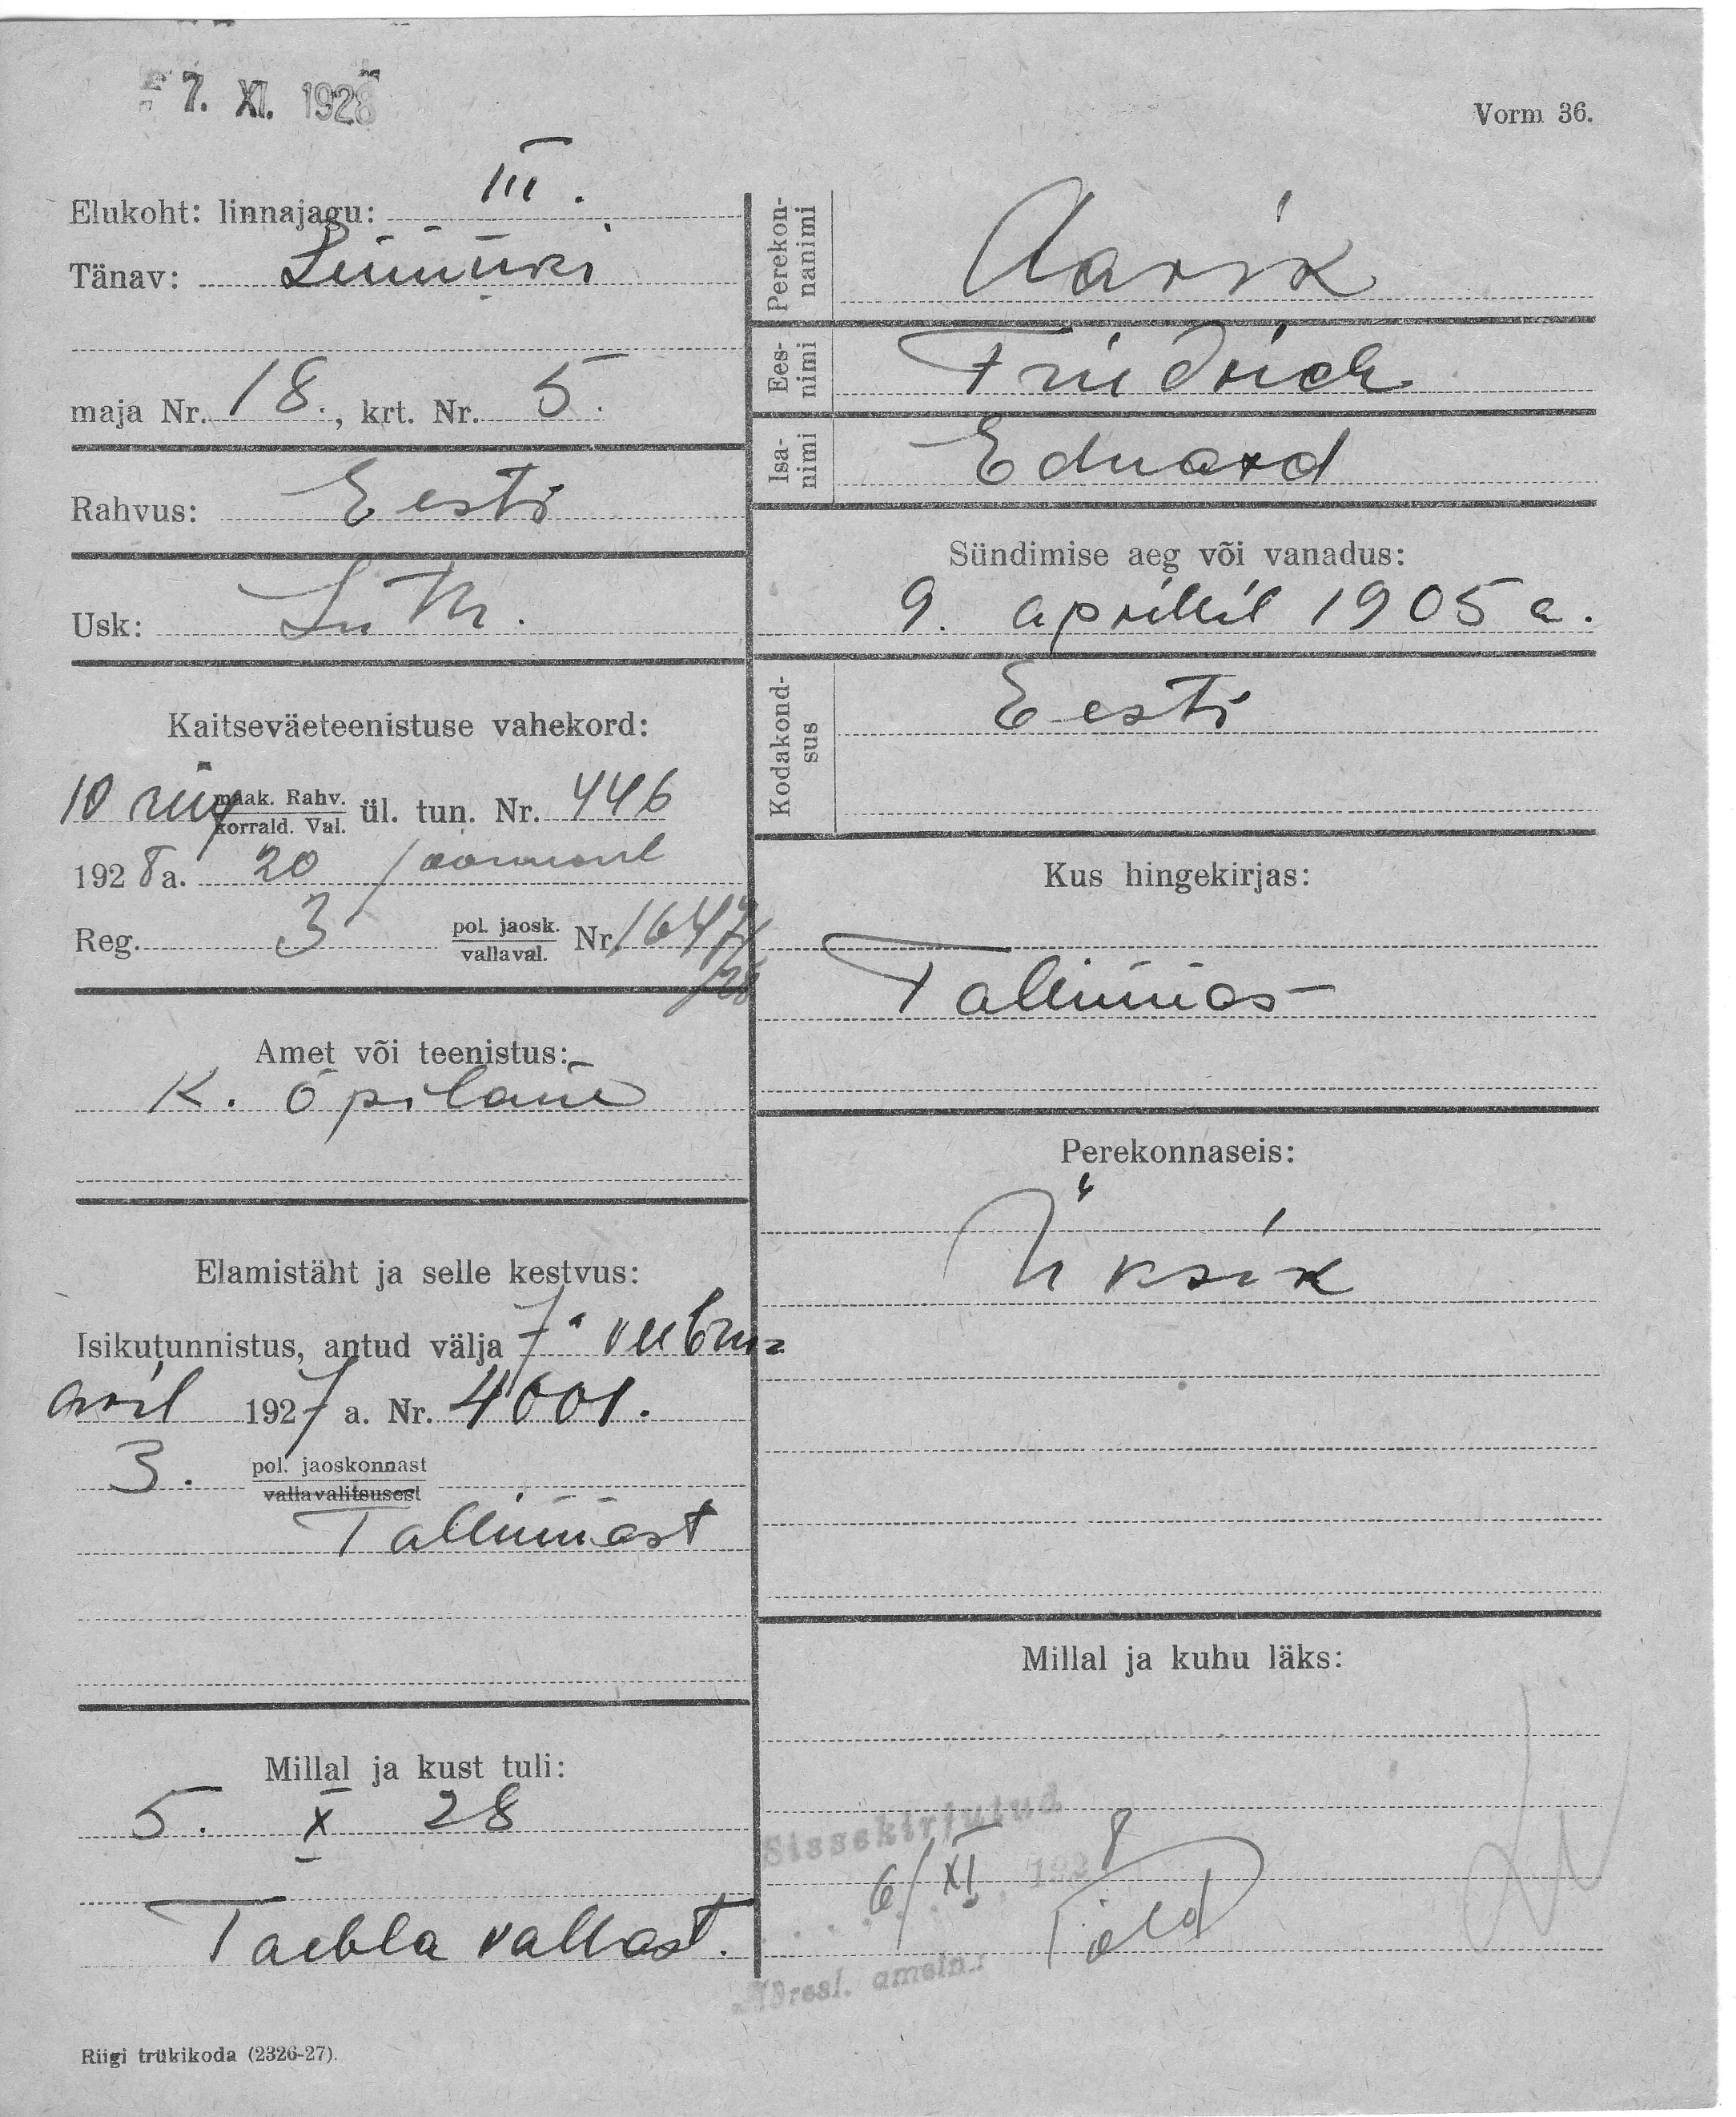 7. XI. 1928
Vorm 36.
Elukoht: linnajagu: III.
Tänav:
maja Nr. 18., krt. Nr. 5.
Rahvus: Eesti
Usk: Luth.
Kaitseväeteenistuse vahekord:
10 maak. Rahv. korrald. Val. ül. tun. Nr. 446
1928 a. 20 jaanuaril
Reg. 3 pol. jaosk. vallaval. Nr.
Amet või teenistus:
K. õpilane
Elamistäht ja selle kestvus:
Isikutunnistus, antud välja 7. veebru=
aril 1927 a. Nr. 4001.
3. pol. jaoskonnast vallavalitsusest
Tallinnast
Millal ja kust tuli:
5. X 28
Taebla vallast.
Perekonnanimi Aarik
Eesnimi Friedrich
Isanimi Eduard
Sündimise aeg või vanadus:
9. aprillil 1905 a.
Kodakondsus Eesti
Kus hingekirjas:
Tallinnas
Perekonnaseis:
Üksik
Millal ja kuhu läks:
Sissekirjutud
6/XI 1928
Adresl. ametn.:
Riigi trükikoda (2326-27).